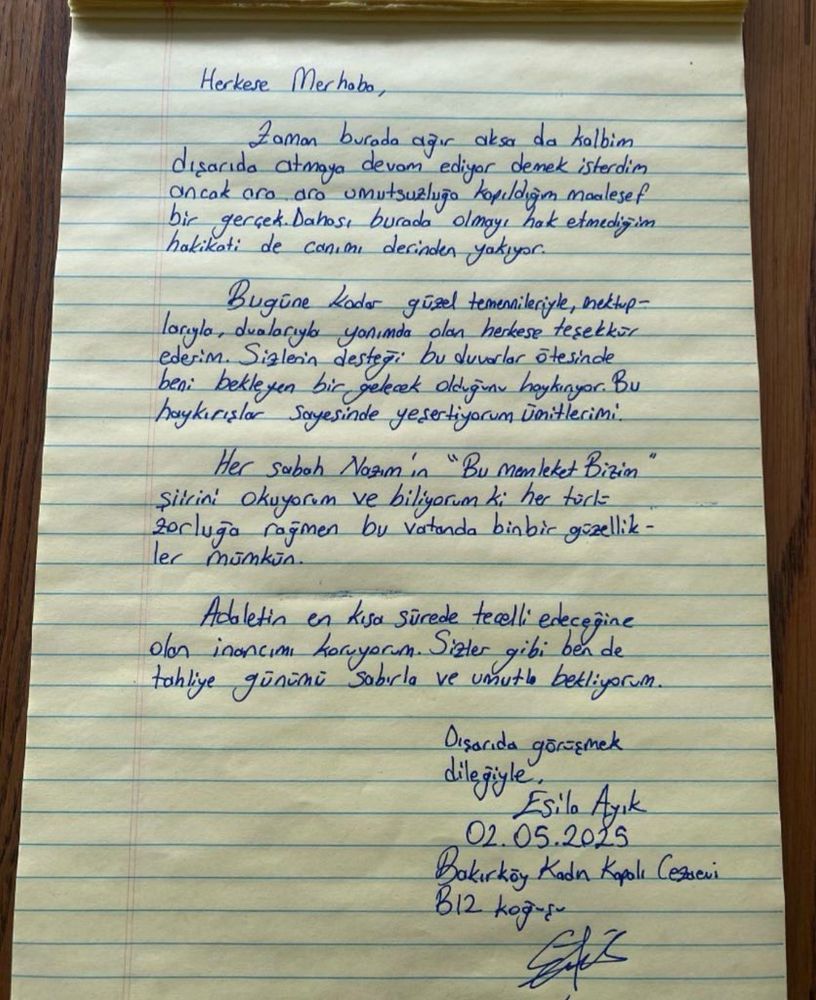 Herkese Merhaba,
Zaman burada ağır aksa da kalbim
dışarıda atmaya devam ediyor demek isterdim
ancak ara ara umutsuzluğa kapıldığım maalesef
bir gerçek. Dahası burada olmayı hak etmediğim
hakikati de canımı derinden yakıyor.
Bugüne kadar güzel temennileriyle, mektup-
larıyla, dualarıyla yanımda olan herkese teşekkür
ederim. Sizlerin desteği bu duvarlar ötesinde
beni bekleyen bir gelecek olduğunu haykırıyor. Bu
haykırışlar sayesinde yeşertiyorum ümitlerimi.
Her sabah Nazım'ın "Bu Memleket Bizim"
şiirini okuyorum ve biliyorum ki her türlü
zorluğa rağmen bu vatanda binbir güzellik-
ler mümkün.
Adaletin en kısa sürede tecelli edeceğine
olan inancımı koruyorum. Sizler gibi ben de
tahliye günümü sabırla ve umutla bekliyorum.
Dışarıda görüşmek
dileğiyle,
Esila Ayık
02.05.2025
Bakırköy Kadın Kapalı Cezaevi
B12 koğuşu